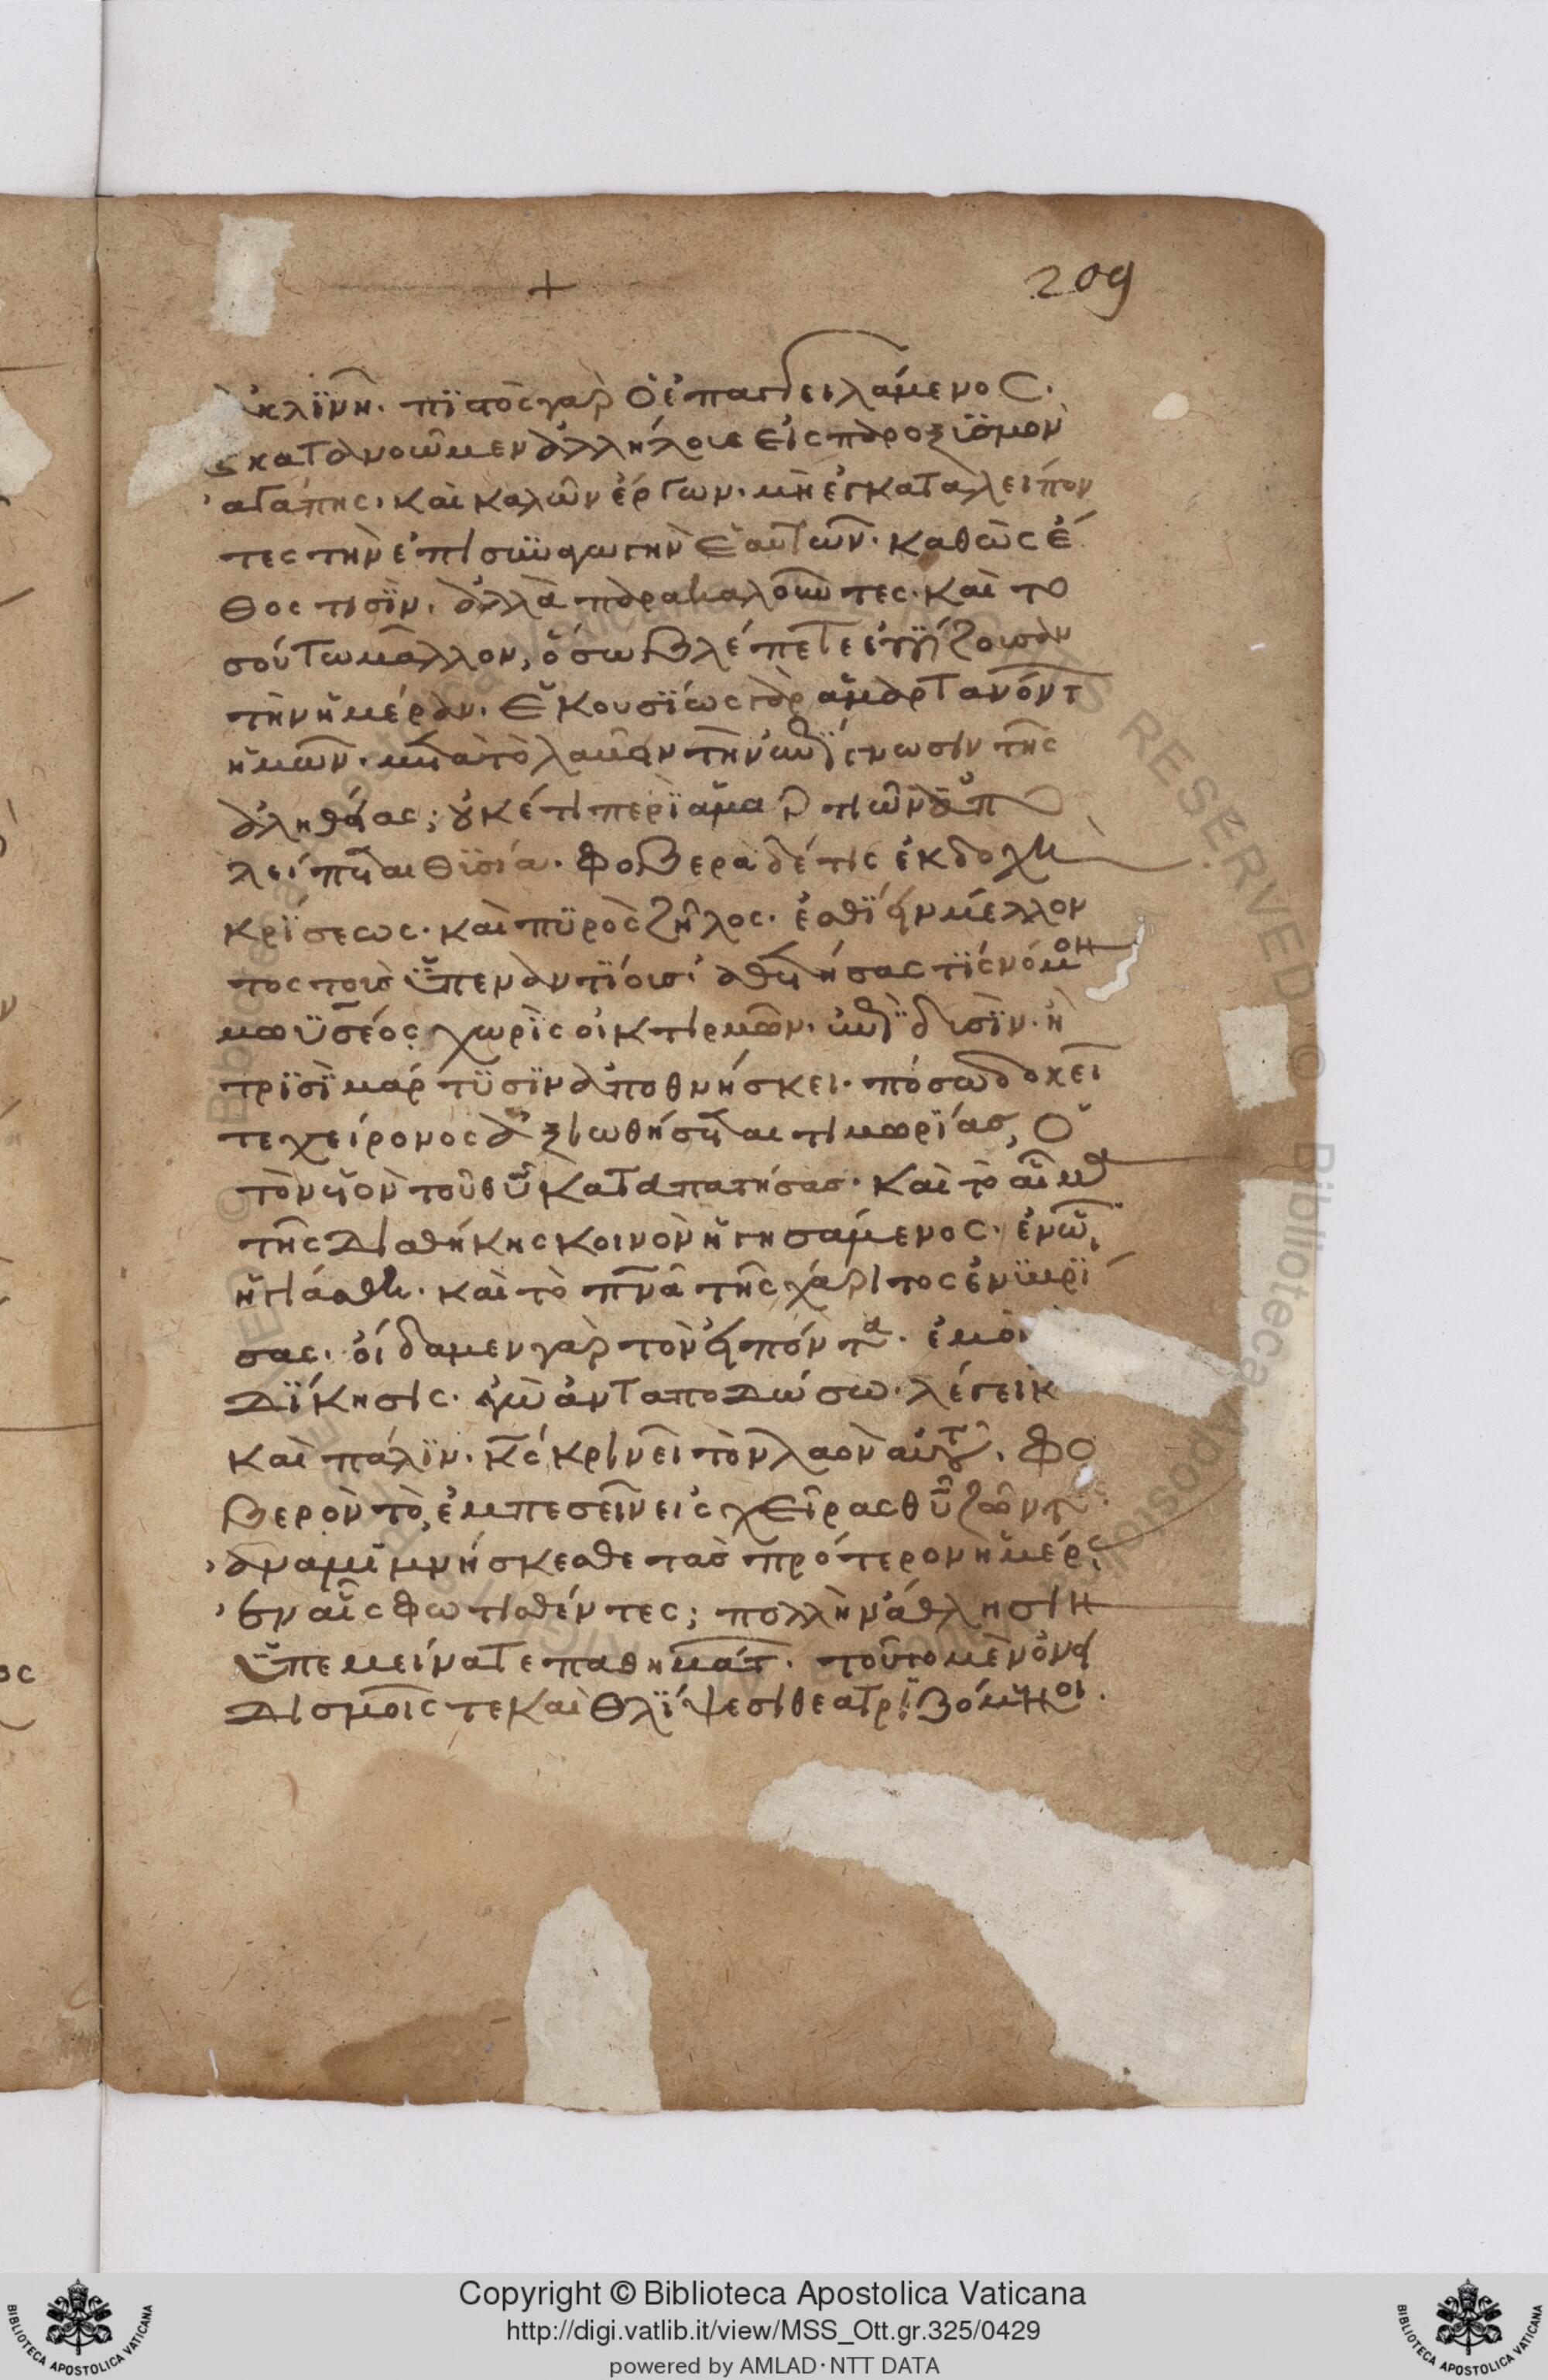 +
209
ἀκλϊνῆ. πϊστὸς γὰρ ὁ ἐπαγγειλάμενος.
καὶ κατανοῶμεν ἀλλήλους εἰς παροξϋσμὸν
ἀγάπης. καὶ καλῶν ἔργων. μὴ ἐγκαταλείπον
τες τὴν ἐπισϋναγωγὴν ἑαυτῶν. καθὼς ἔ
θος τισῒν. ἀλλὰ παρακαλοῦντες. καὶ το
σούτω μᾶλλον, ὅσω βλέπετε ἐγγίζουσαν
τὴν ἡμέραν. ἑκουσϊως γὰρ ἁμαρτανόντ
ἡμῶν. μετὰ τὸ λαβεῖν τὴν ἐπίγνωσιν τῆς
ἀληθείας; οὐκέτι περῒ ἁμαρτιῶν ἀπο
λείπεται θϋσία. φοβερὰ δέ τις ἐκδοχὴ
κρϊσεως. καὶ πϋρὸς ζῆλος. ἐσθϊειν μέλλον
τος τοὺς ὑπεναντϊους. ἀθετήσας τῒς νόμον
μωϋσέος χωρῒς οἰκτιρμῶν. ἐπῒ δυσῒν. ἢ
τρϊσῒ μάρτϋσϊν ἀποθνήσκει. πόσω δοκεῖ
τε χείρονος ἀξιωθήσεται τιμωρϊας, ὁ
τὸν υἱὸν τοῦ θῦ καταπατήσας. καὶ τὸ αἷμα
τῆς διαθήκης κοινὸν ἡγησάμενος. ἐν ὧ
ἡγιάσθη. καὶ τὸ πνα τῆς χάριτος ἐνϋβρϊ
σας. οἴδαμεν γὰρ τὸν εἰπόντα. ἐμοὶ
δϊκησις. ἐγὼ ἀνταποδώσω. λέγει κ
καὶ πάλϊν. κς κρινεῖ τὸν λαὸν αὐτοῦ. φο
βερὸν τὸ, ἐμπεσεῖν εἰς χεῖρας θῦ ζῶντος.
ἀναμιμνήσκεσθε τὰς πρότερον ἡμέρας
ἐν αἷς φωτισθέντες; πολλὴν ἄθλησιν
ὑπεμείνατε παθημάτ. τοῦτο μὲν ὀνει
δισμοῖς τε καὶ θλϊψεσι θεατριζόμενοι.
Copyright © Biblioteca Apostolica Vaticana
http://digi.vatlib.it/view/MSS_Ott.gr.325/0429
powered by AMLAD·NTT DATA
BIBLIOTECA APOSTOLICA VATICANA
BIBLIOTECA APOSTOLICA VATICANA